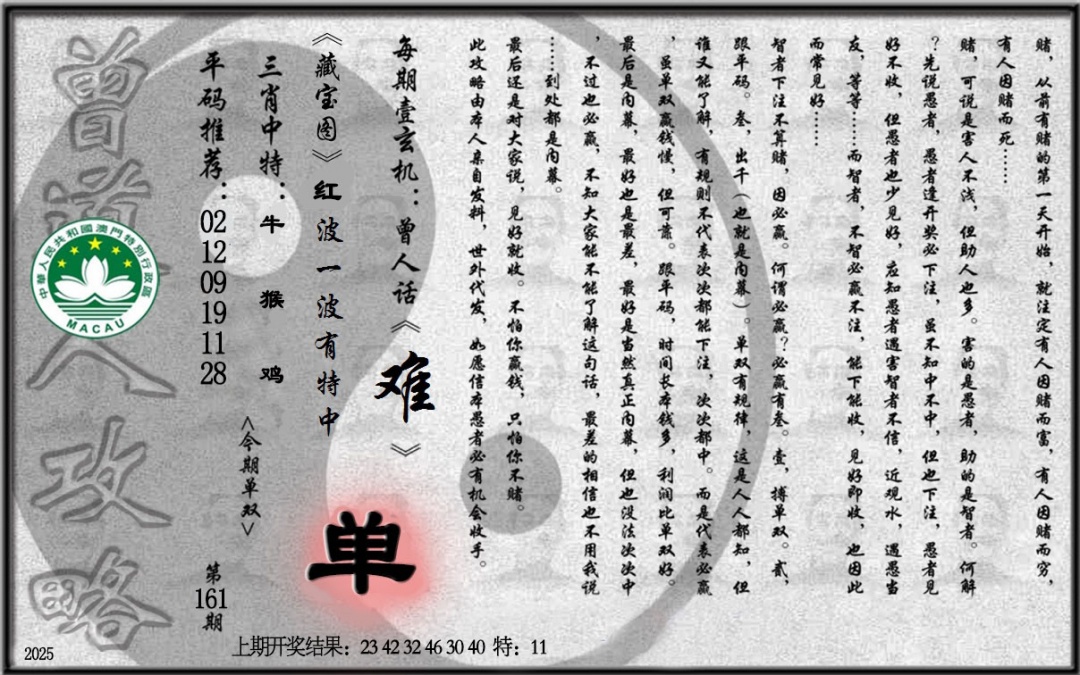 赌，从前有赌的第一天开始，就注定有人因赌而富，有人因赌而穷，
有人因赌而死……
赌，可说是害人不浅，但助人也多。害的是愚者，助的是智者。何解
？先说愚者，愚者逢开奖必下注，虽不知中不中，但也下注，愚者见
好不收，但愚者也少见好，应知愚者遇害智者不信，近观水，遇愚当
友，等等……而智者，不智必赢不注，能下能收，见好即收，也因此
而常见好……
智者下注不算赌，因必赢。何谓必赢？必赢有叁。壹，搏单双。贰，
跟平码。叁，出千（也就是内幕）。单双有规律，这是人人都知，但
谁又能了解，有规则不代表次次都能下注，次次都中。而是代表必赢
，虽单双赢钱慢，但可靠。跟平码，时间长本钱多，利润比单双好。
最后是内幕，最好也是最差，最好是当然真正内幕，但也没法次次中
，不过也必赢，不知大家能不能了解这句话，最差的相信也不用我说
……到处都是内幕。
最后还是对大家说，见好就收。不怕你赢钱，只怕你不赌。
此攻略由本人亲自发料，世外代发，如愿信本愚者必有机会收手。
每期壹玄机：曾人话《难》
《藏宝图》红波一波有特中
单
三肖中特：牛 猴 鸡
<今期单双>
平码推荐：02 12 09 19 11 28
第161期
曾道人攻略
中華人民共和國澳門特別行政區
MACAU
2025
上期开奖结果：23 42 32 46 30 40 特：11